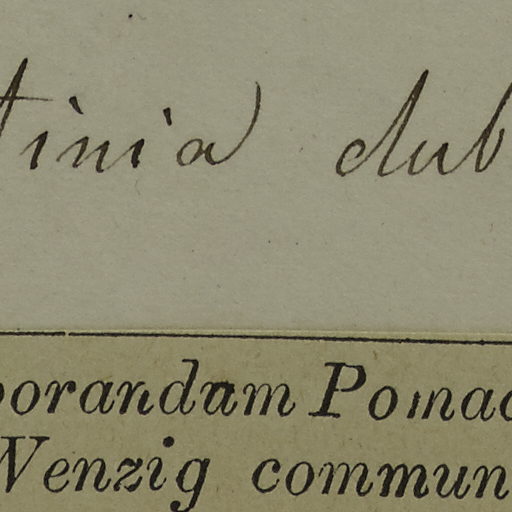 tinia dub
borandum Pomac
Wenzig commun